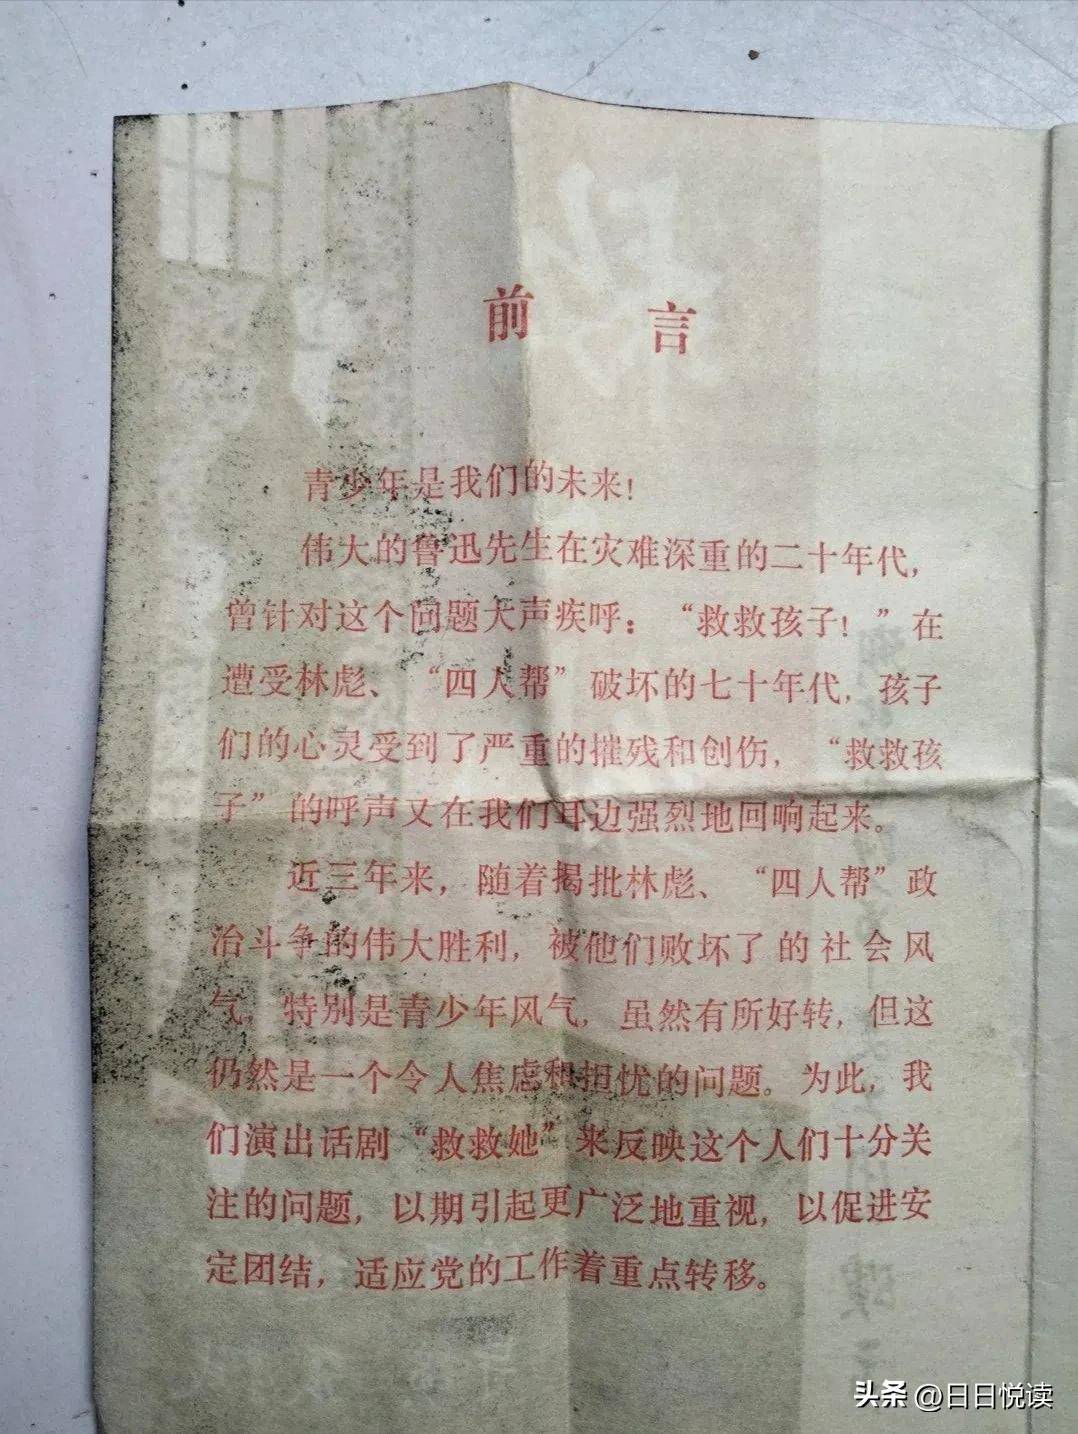 前言
青少年是我们的未来!
伟大的鲁迅先生在灾难深重的二十年代,
曾针对这个问题大声疾呼：“救救孩子!”在
遭受林彪、“四人帮”破坏的七十年代,孩子
们的心灵受到了严重的摧残和创伤,“救救孩
子”的呼声又在我们耳边强烈地回响起来。
近三年来,随着揭批林彪、“四人帮”政
治斗争的伟大胜利,被他们败坏了的社会风
气,特别是青少年风气,虽然有所好转,但这
仍然是一个令人焦虑和担忧的问题。为此,我
们演出话剧“救救她”来反映这个人们十分关
注的问题,以期引起更广泛地重视,以促进安
定团结,适应党的工作着重点转移。
头条 @日日悦读